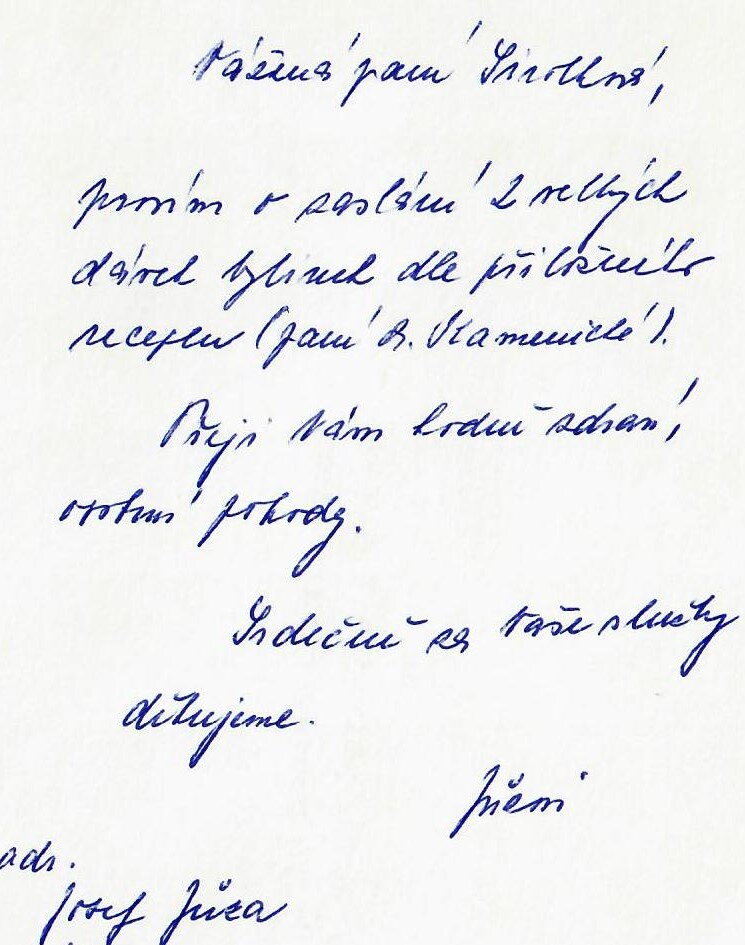 Vážená paní Sirotková,
prosím o zaslání 2 velkých
dávek bylinek dle přiloženého
receptu (paní dr. Kamenické).
Přeji Vám hodně zdraví,
osobní pohody.
Srdečně za Vaše služby
děkujeme.
Jůzovi
adr.
Josef Jůza